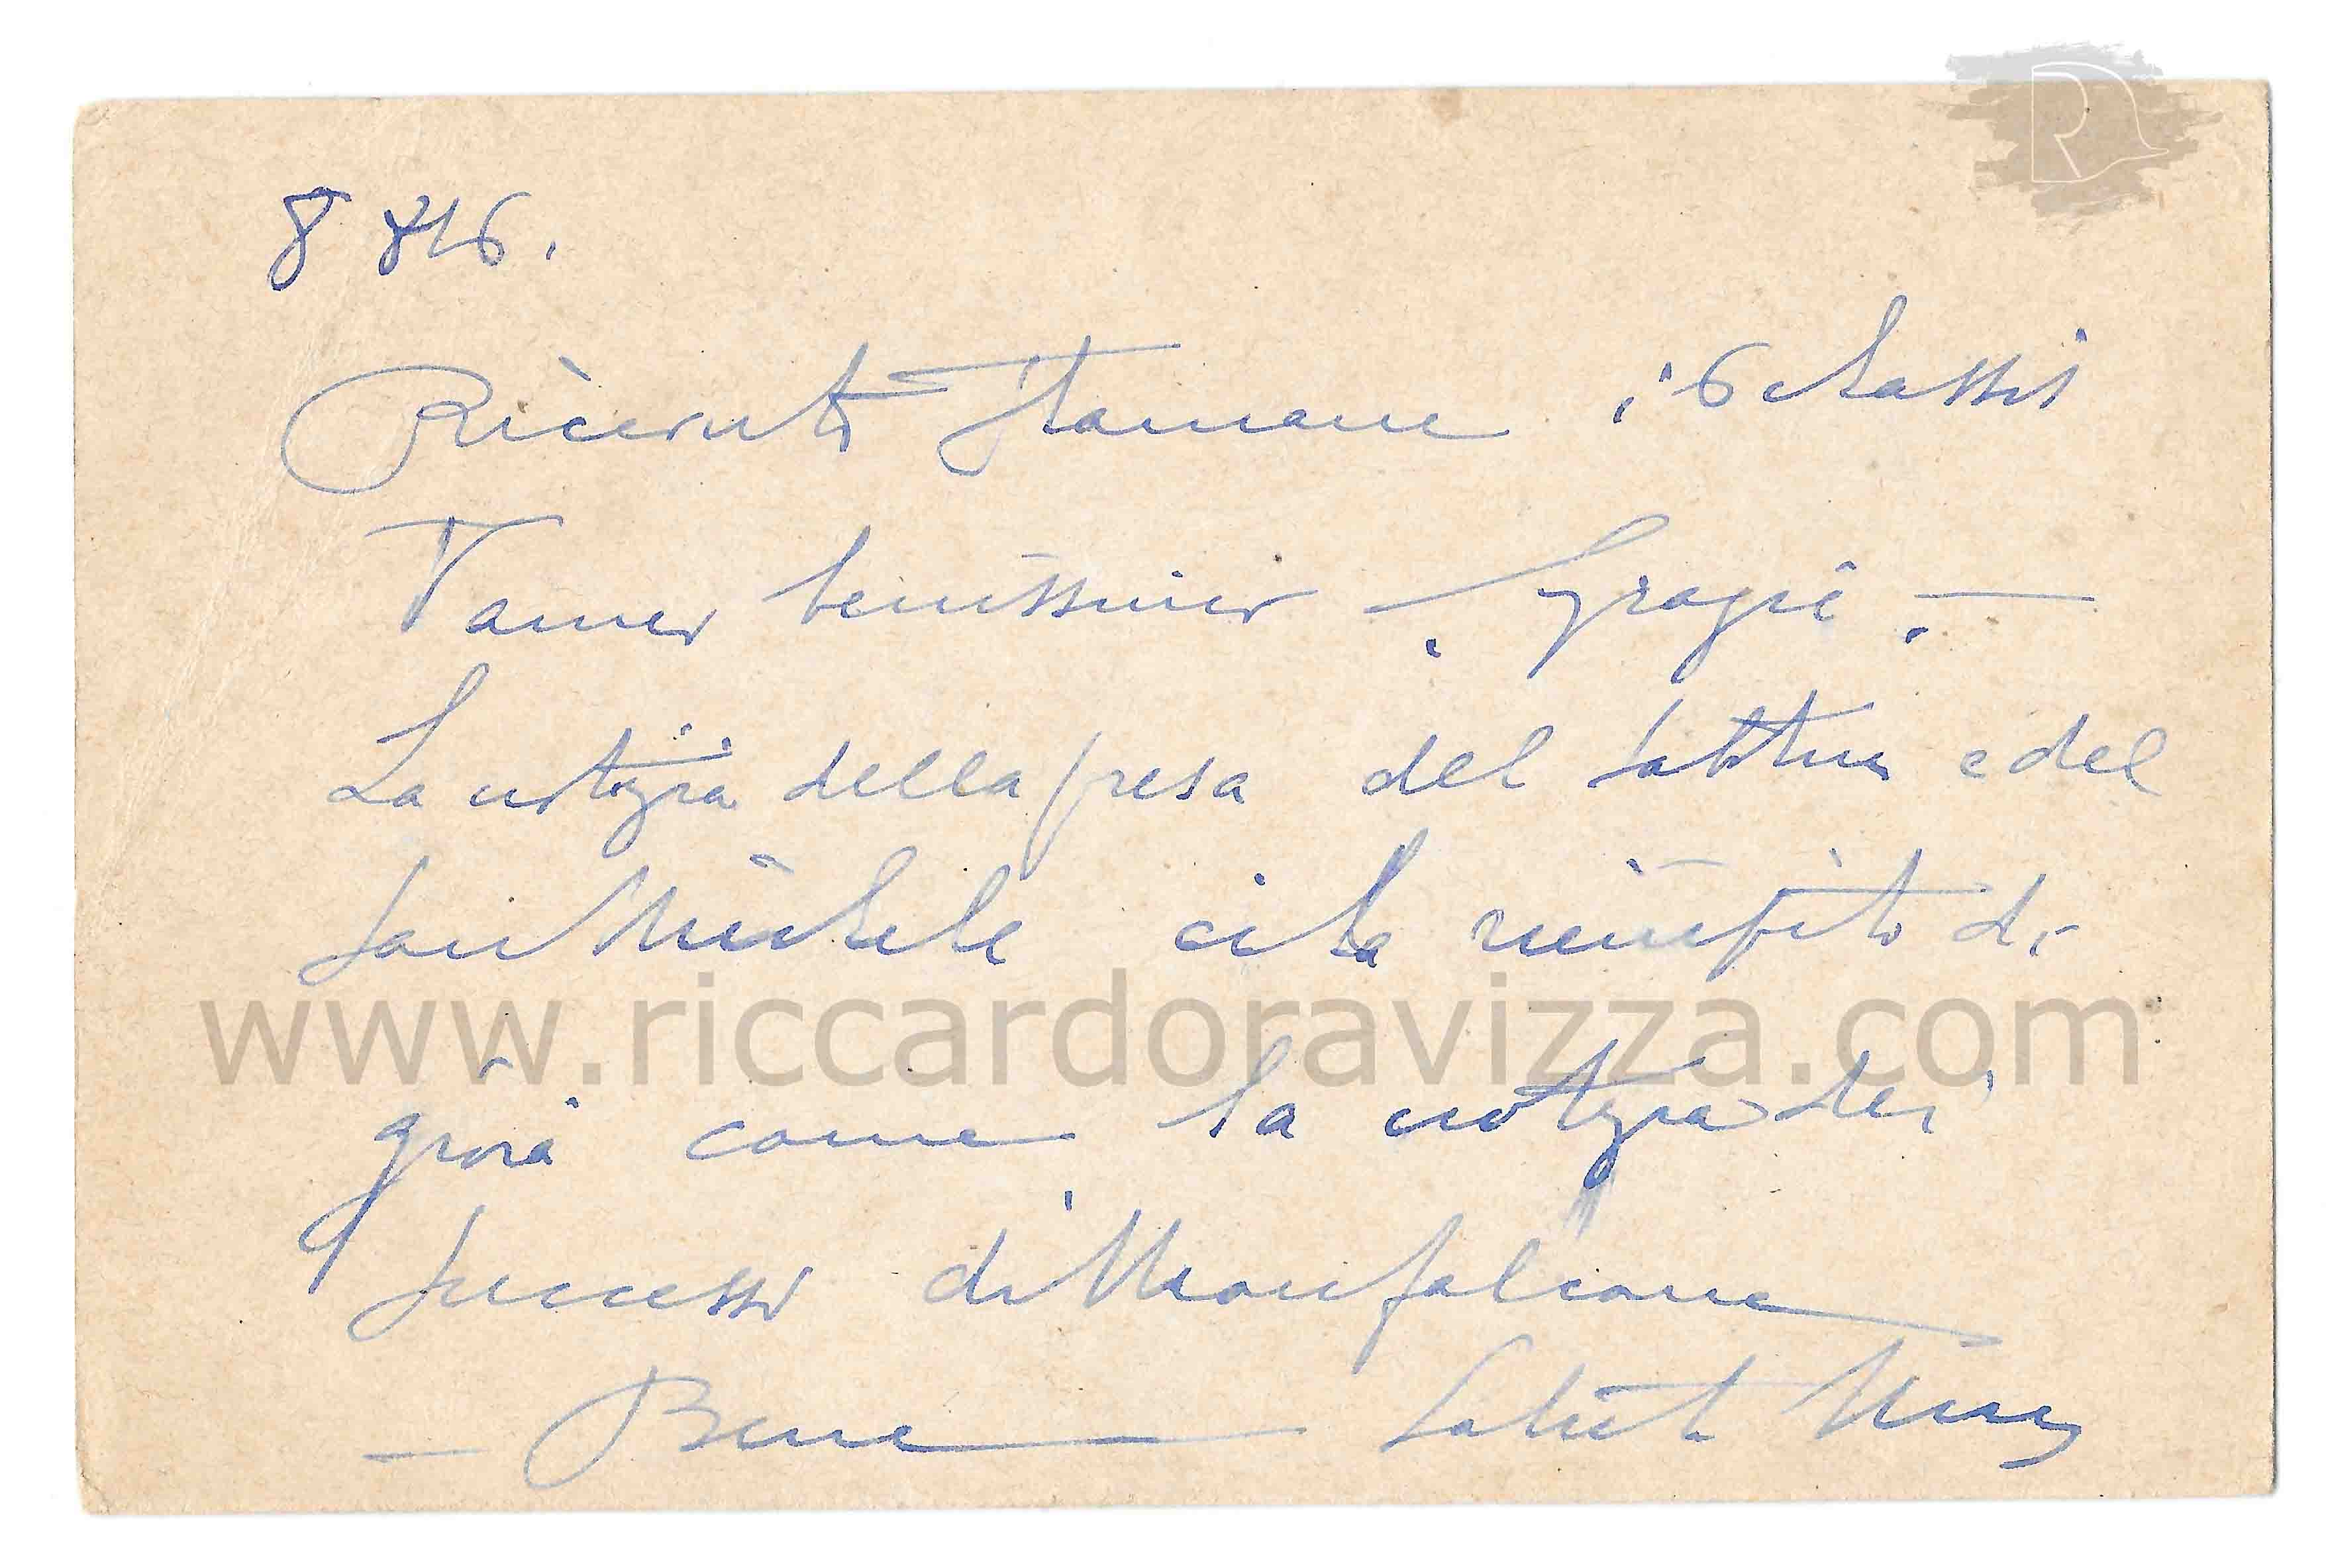 8 8 16.
Ricevuto stamane i 6 chassis
Vanno benissimo. — Grazie. —
La notizia della presa del Sabotino e del
San Michele ci ha riempito di
www.riccardoravizza.com
gioia come la notizia dei
successi di Monfalcone
— Bene — Saluti